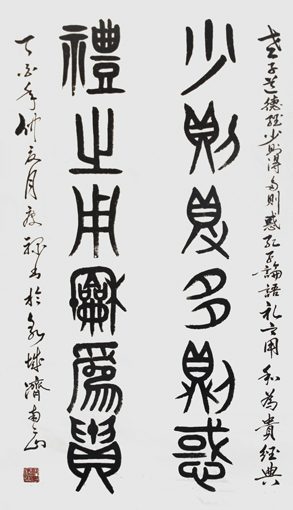 老子道德經少則得多則惑孔子論語礼之用和為貴經典
少則得多則惑
禮之用龢為貴
年仲夏月書於泉城濟南